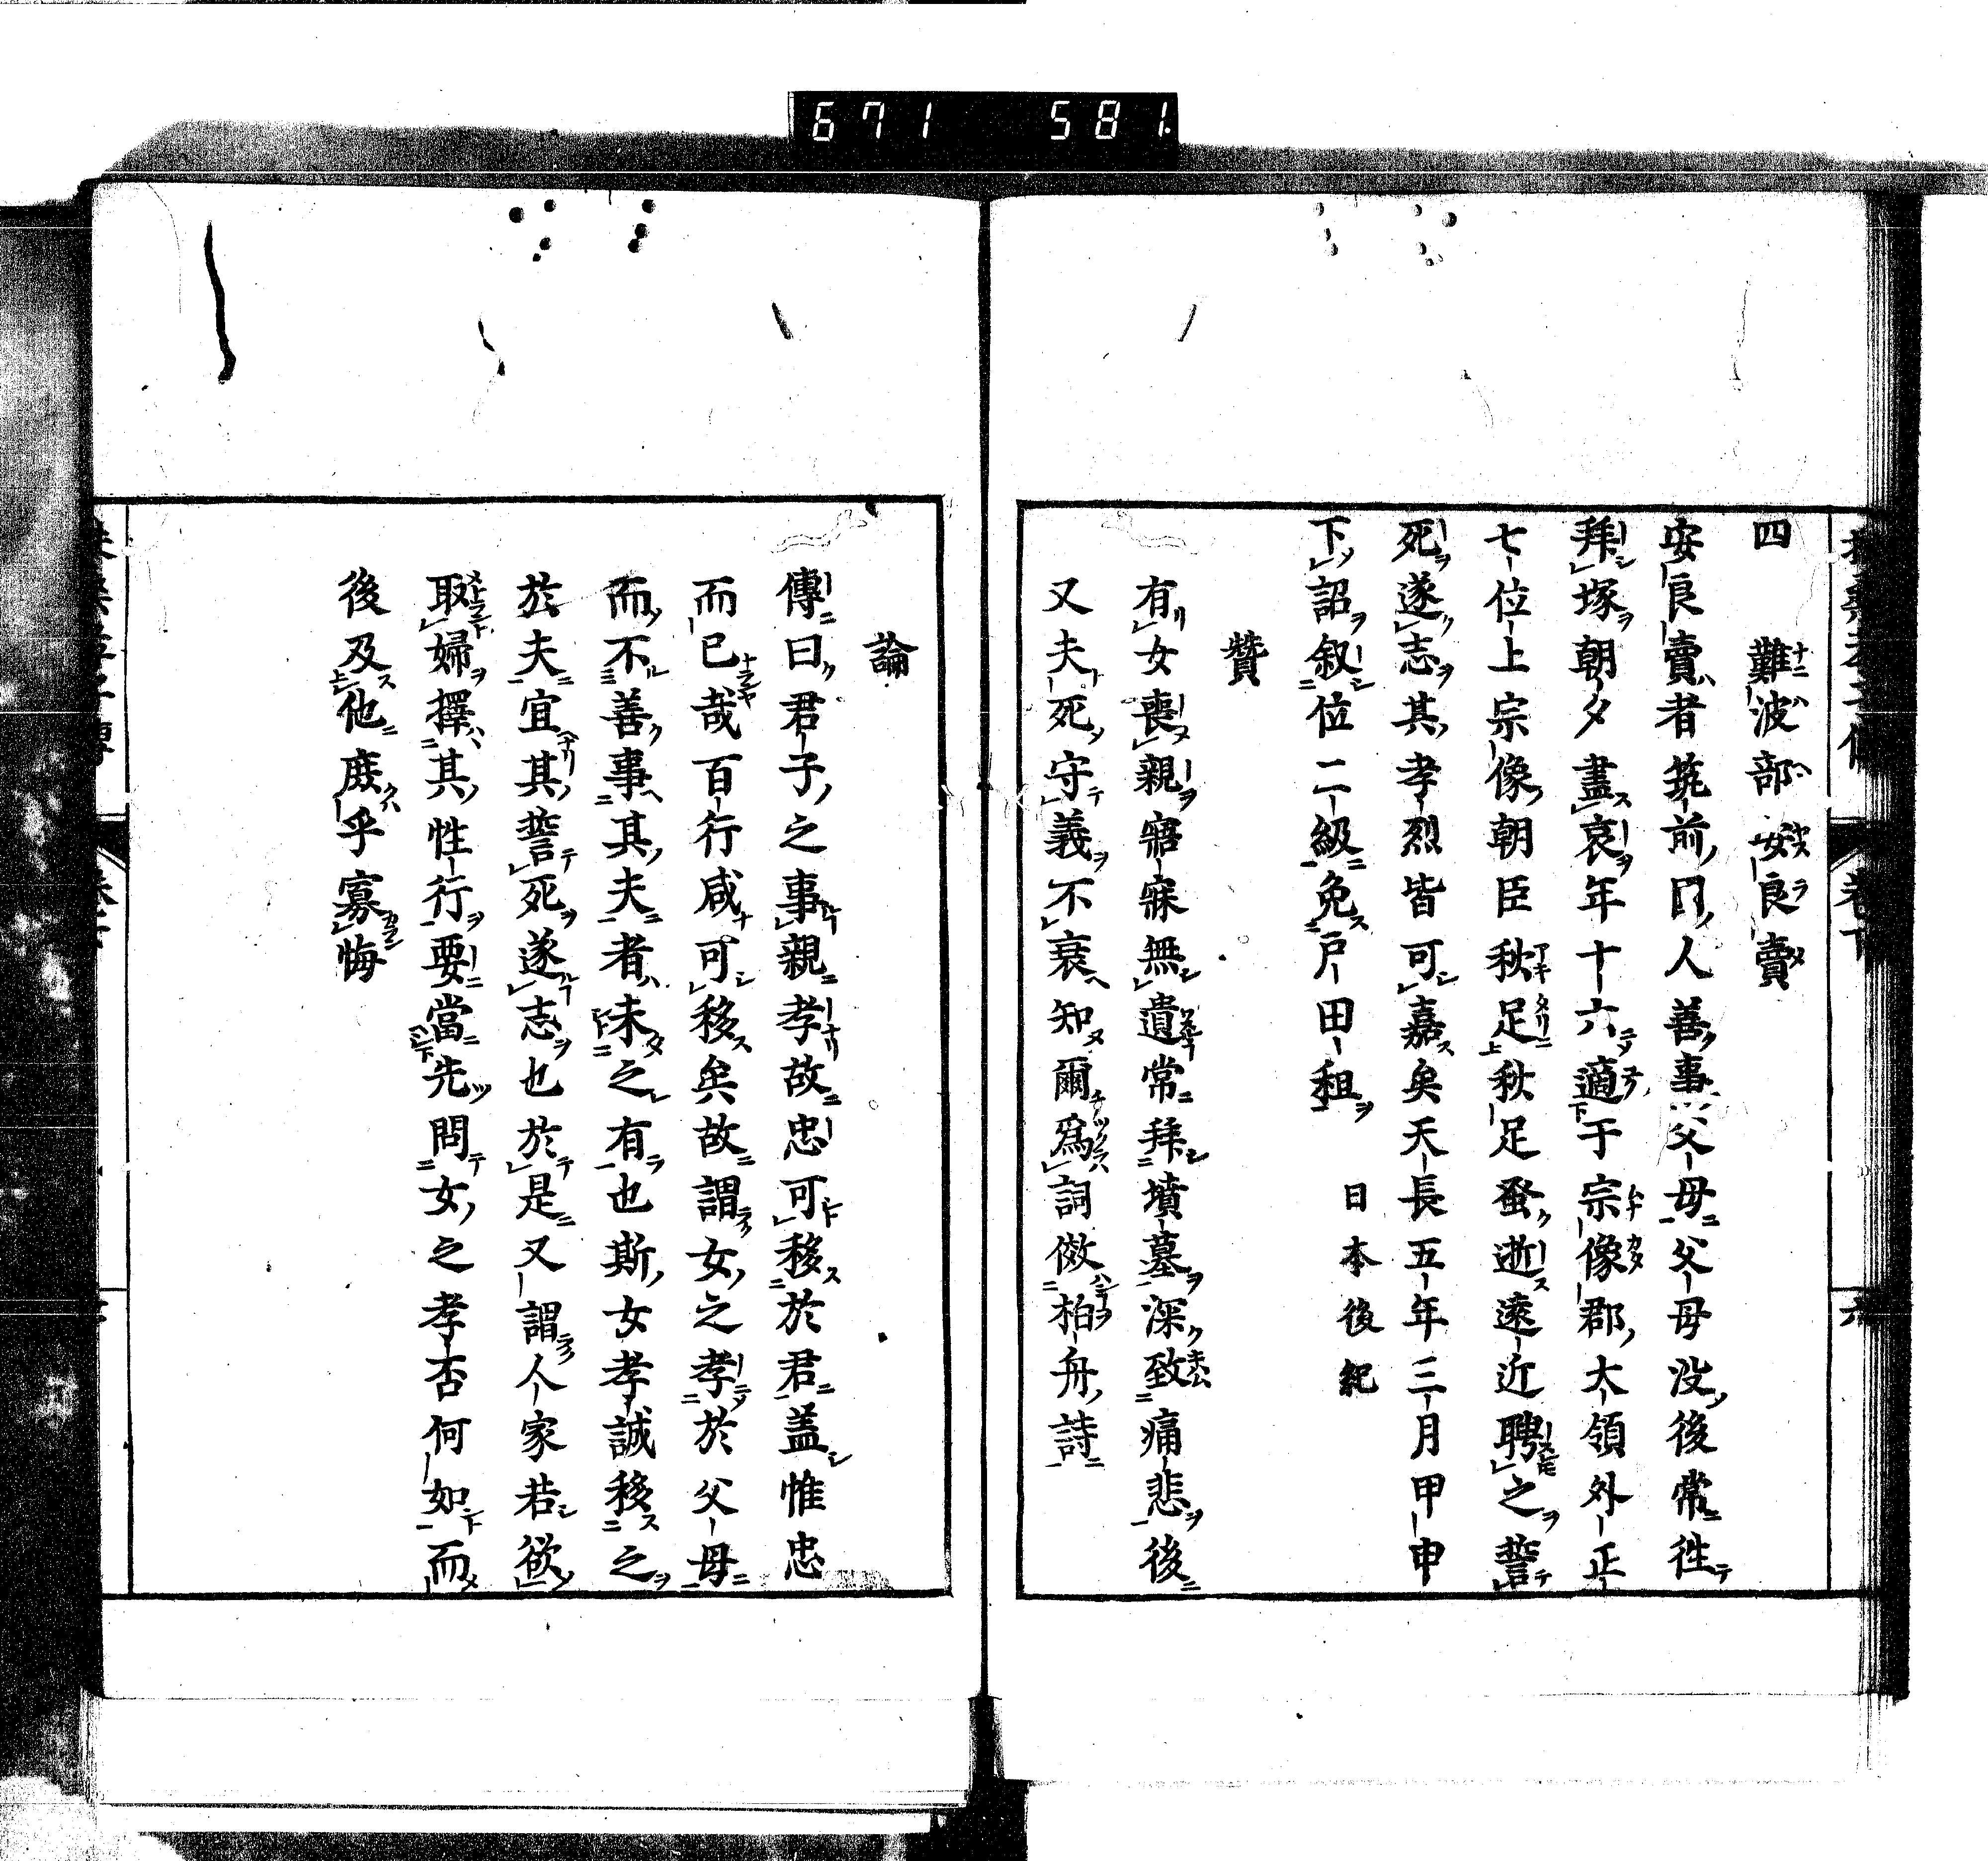 671 581
四 難波部安良賣
安良賣者筑前囯人善事父母父母没後常徃
拜塚朝夕盡哀年十六適于宗像郡大領外正
七位上宗像朝臣秋足秋足蚤逝遠近聘之誓
死遂志其孝烈皆可嘉矣天長五年三月甲申
下詔叙位二級免戸田租 日本後紀
贊
有女喪親寤寐無遺常拜墳墓深致痛悲後
又夫死守義不衰知爾爲詞倣柏舟詩
論
傳曰君子之事親孝故忠可移於君盖惟忠
而已哉百行咸可移矣故謂女之孝於父母
而不善事其夫者未之有也斯女孝誠移之
於夫宜其誓死遂志也於是又謂人家若欲
耴婦擇其性行要當先問女之孝否何如而
後及他庶乎寡悔